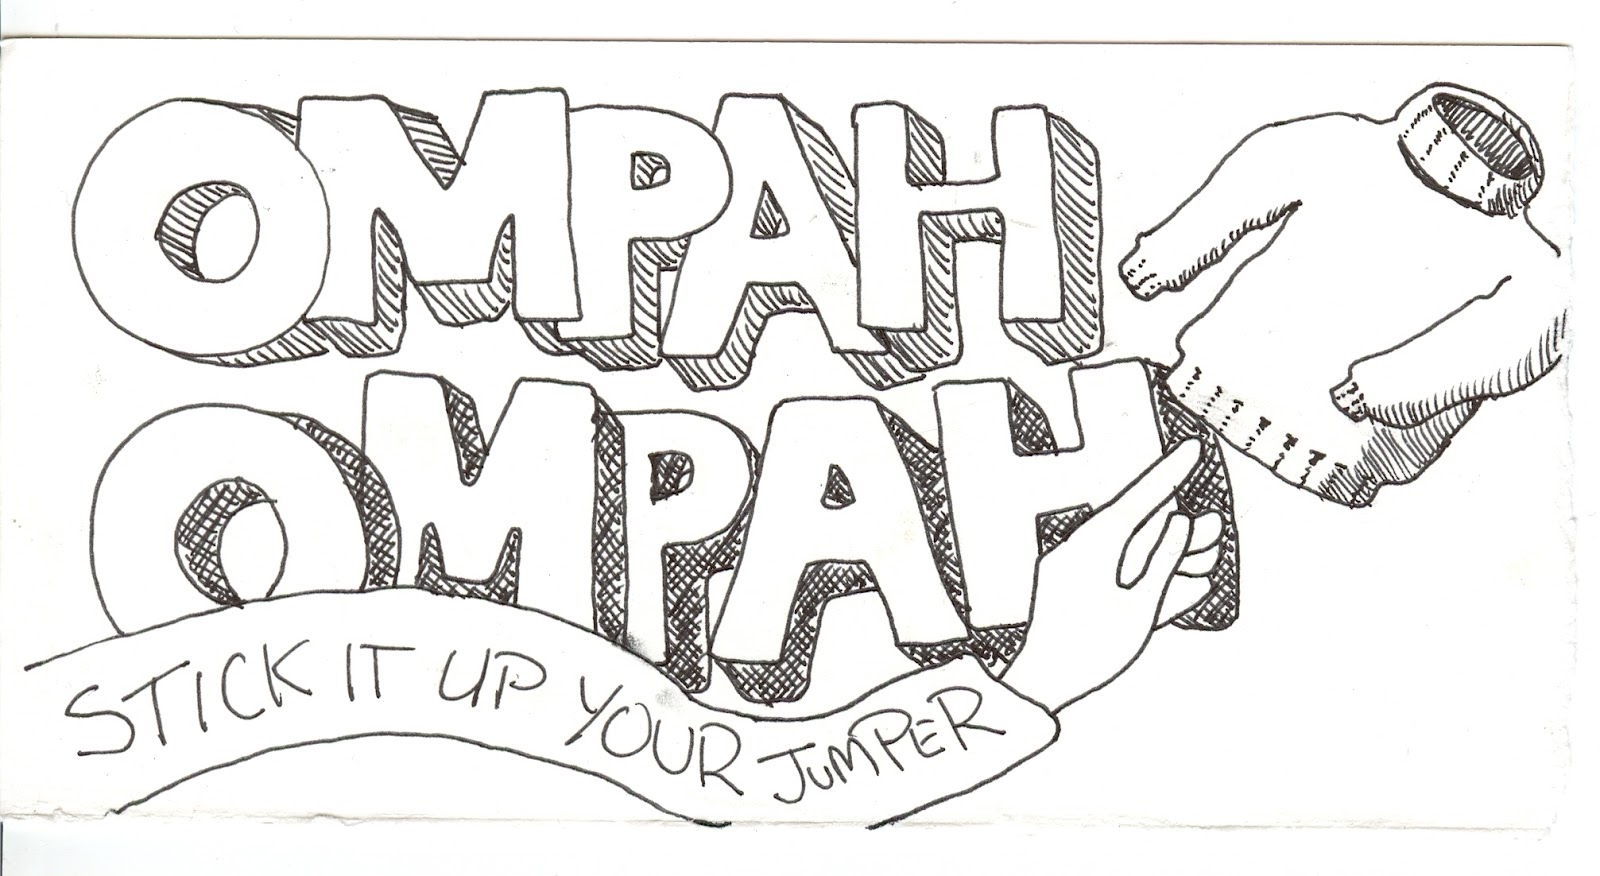 OMPAH
OMPAH
STICK IT UP YOUR JUMPER